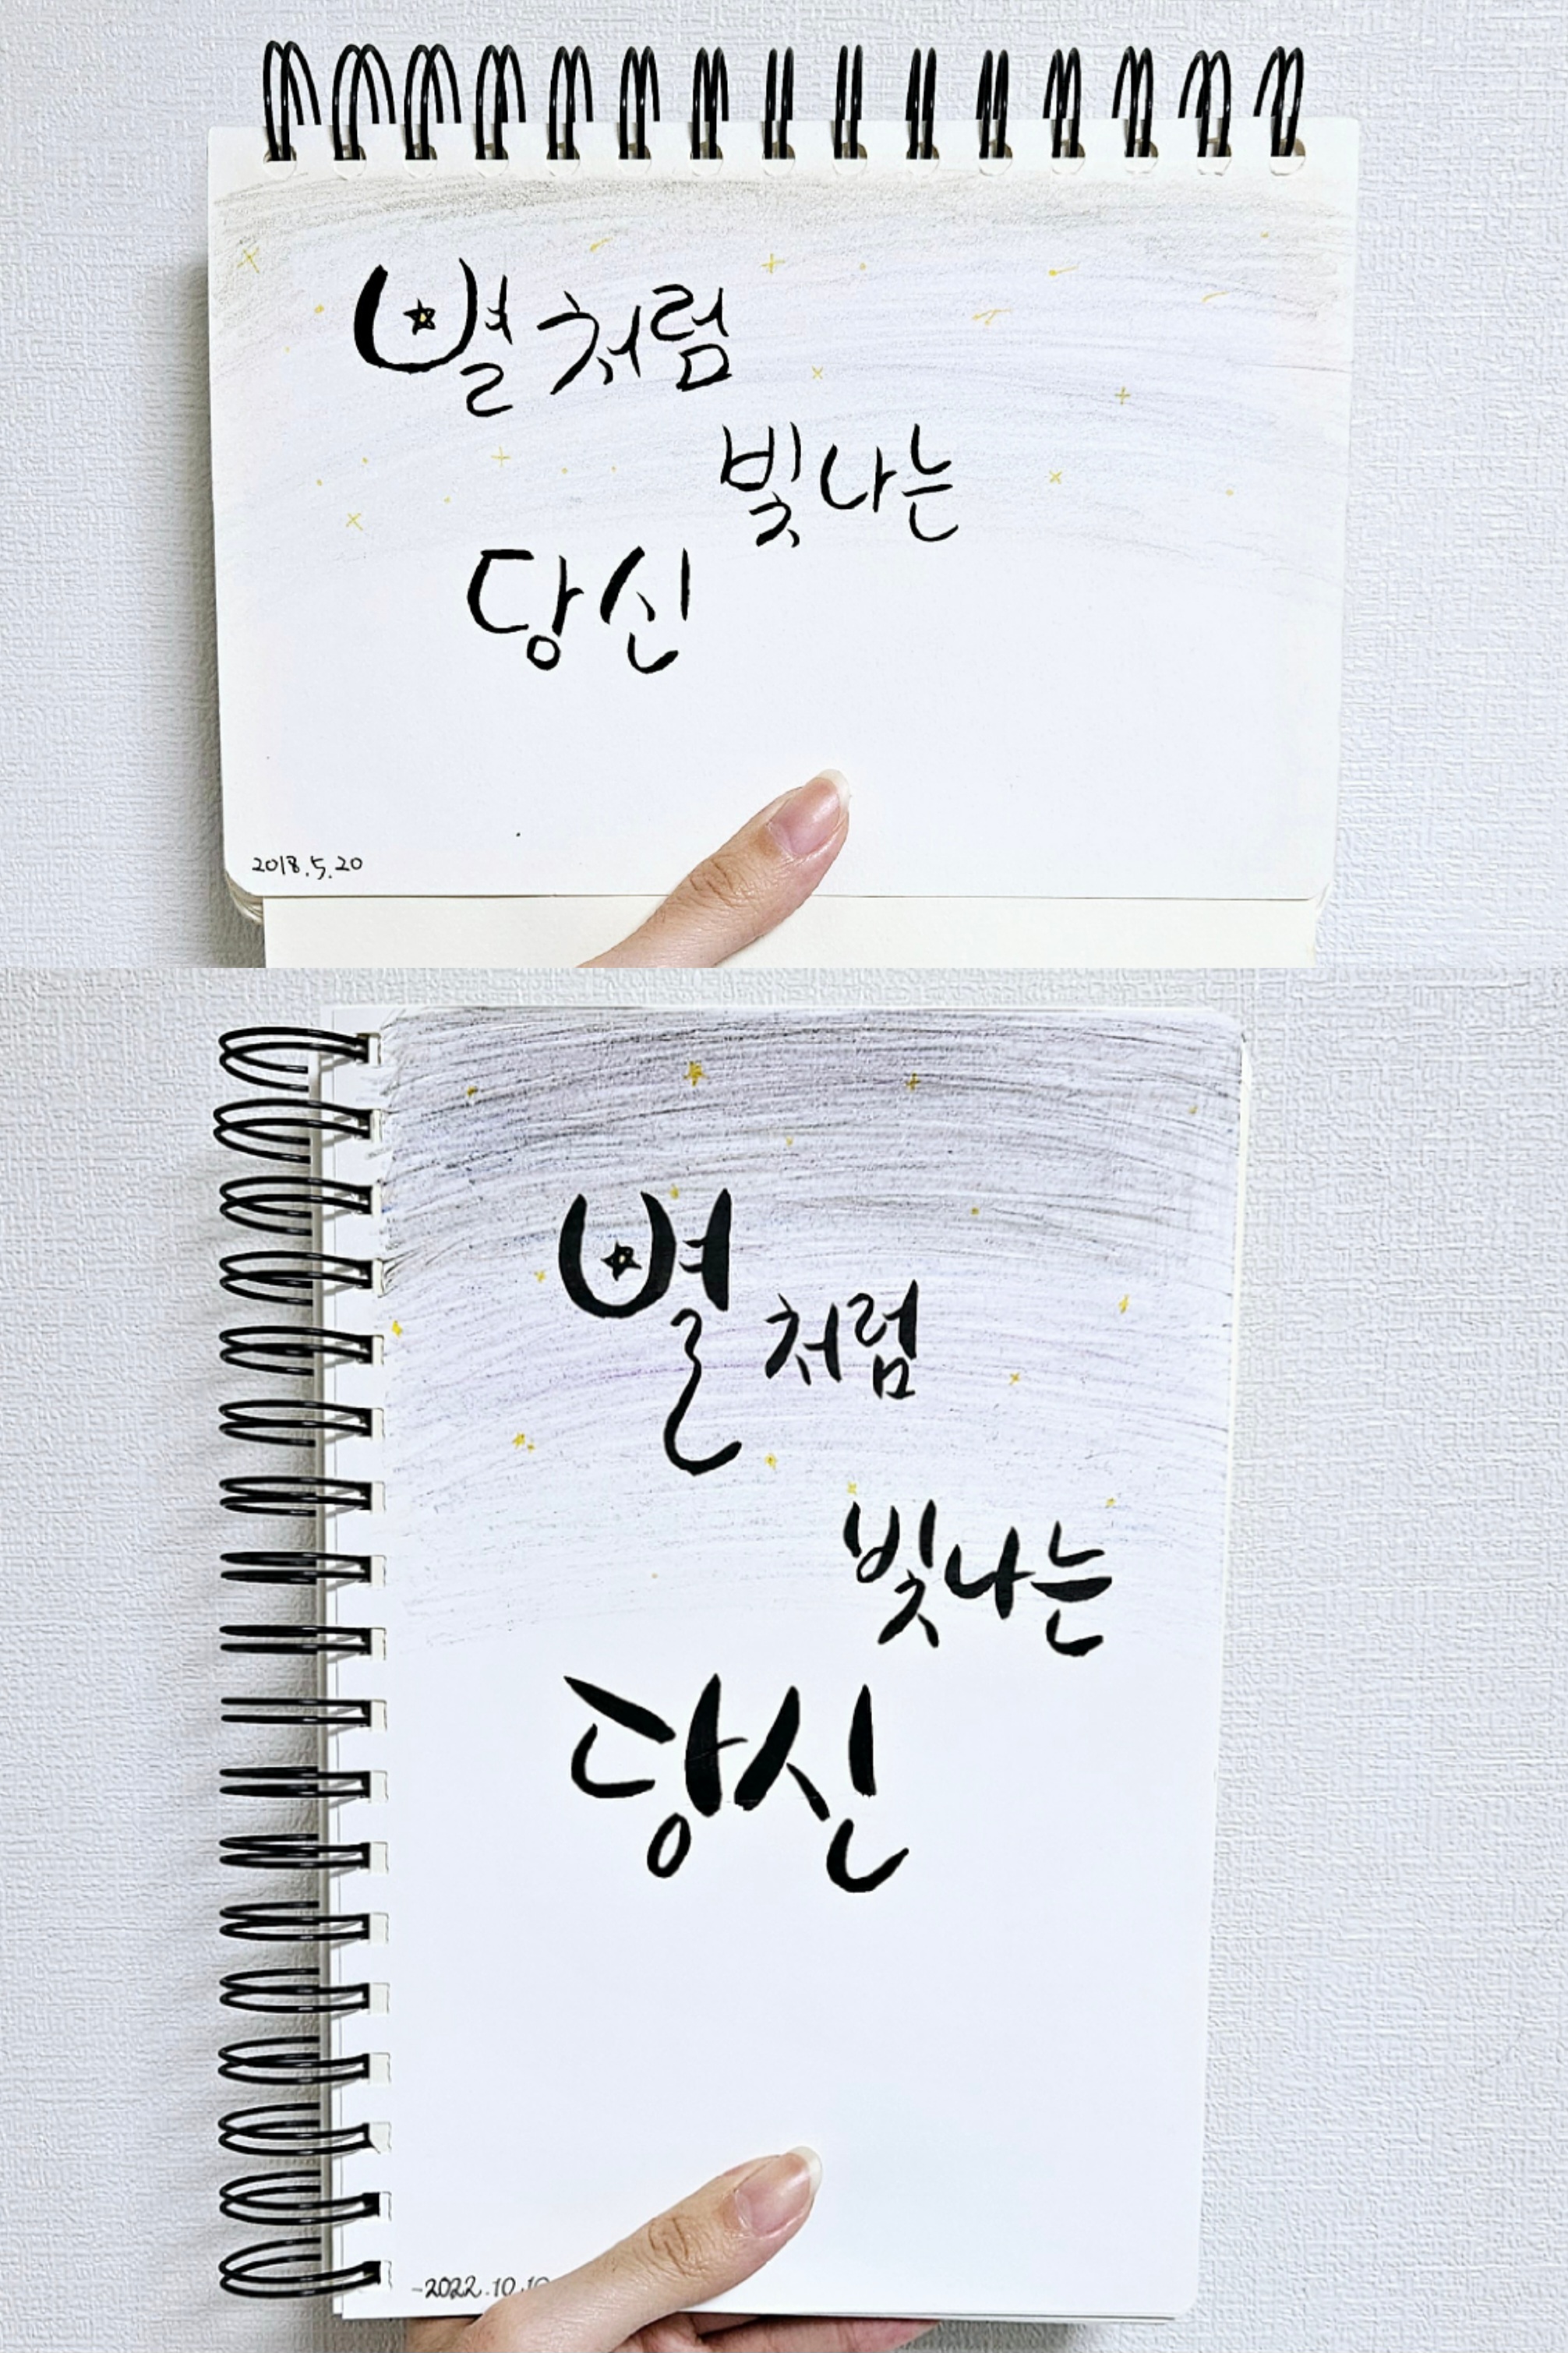 별처럼
빛나는
당신
2018.5.20
별처럼
빛나는
당신
-2022.10.10